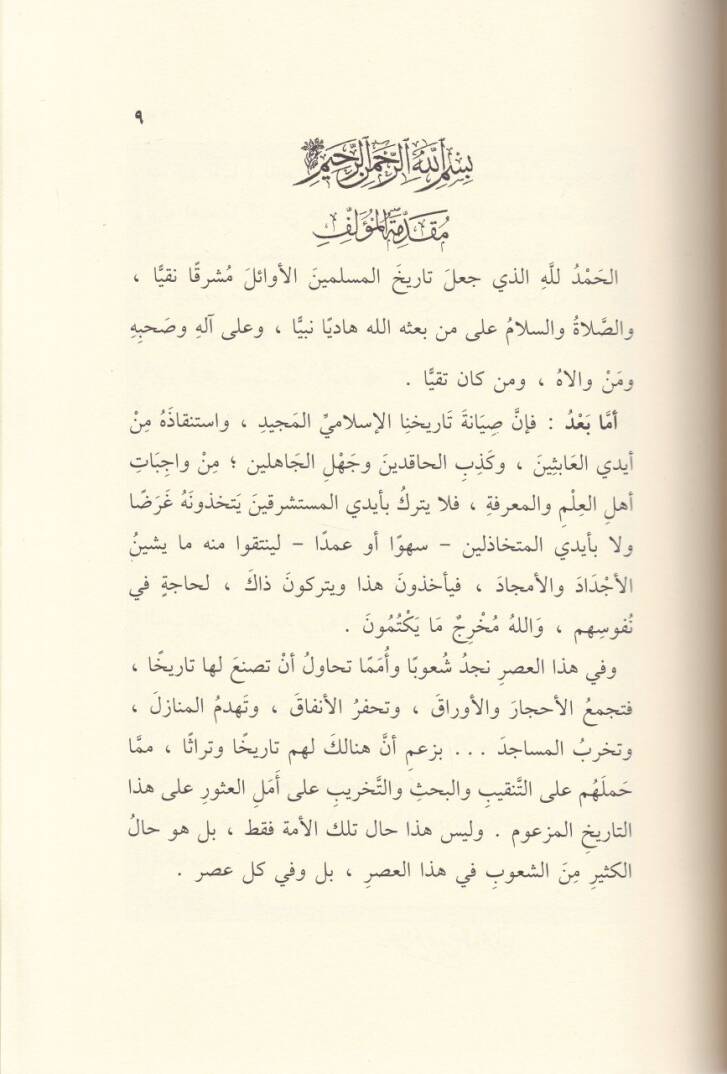 ٩
بِسْمِ ٱللَّهِ ٱلرَّحْمَٰنِ ٱلرَّحِيمِ
مُقَدِّمَةُ المُؤَلِّفِ
الحَمْدُ للَّهِ الذي جعلَ تاريخَ المسلمينَ الأوائلَ مُشرقًا نقيًّا ،
والصَّلاةُ والسلامُ على من بعثه الله هاديًا نبيًّا ، وعلى آلهِ وصَحبِهِ
ومَنْ والاهُ ، ومن كان تقيًّا .
أمَّا بَعْدُ : فإنَّ صِيَانةَ تَاريخنِا الإسلاميِّ المَجيدِ ، واستنقاذَهُ مِنْ
أيدي العَابثِينَ ، وكَذِبِ الحاقدينَ وجَهْلِ الجَاهلين ؛ مِنْ واجِبَاتِ
أهلِ العِلْمِ والمعرفةِ ، فلا يتركُ بأيدي المستشرقينَ يَتخذونَهُ غَرَضًا
ولا بأيدي المتخاذلين – سهوًا أو عمدًا – لينتقوا منه ما يشينُ
الأجْدَادَ والأمجادَ ، فيأخذونَ هذا ويتركونَ ذاكَ ، لحاجةٍ في
نُفوسِهم ، وَاللهُ مُخْرِجٌ مَا يَكْتُمُونَ .
وفي هذا العصرِ نجدُ شُعوبًا وأُمَمًا تحاولُ أنْ تصنعَ لها تاريخًا ،
فتجمعُ الأحجارَ والأوراقَ ، وتحفرُ الأنفاقَ ، وتَهدمُ المنازلَ ،
وتخربُ المساجدَ ... بزعمِ أنَّ هنالكَ لهم تاريخًا وتراثًا ، ممَّا
حَملَهُم على التَّنقيبِ والبحثِ والتَّخريبِ على أَمَلِ العثورِ على هذا
التاريخِ المزعوم . وليس هذا حال تلك الأمة فقط ، بل هو حالُ
الكثيرِ مِنَ الشعوبِ في هذا العصرِ ، بل وفي كل عصر .